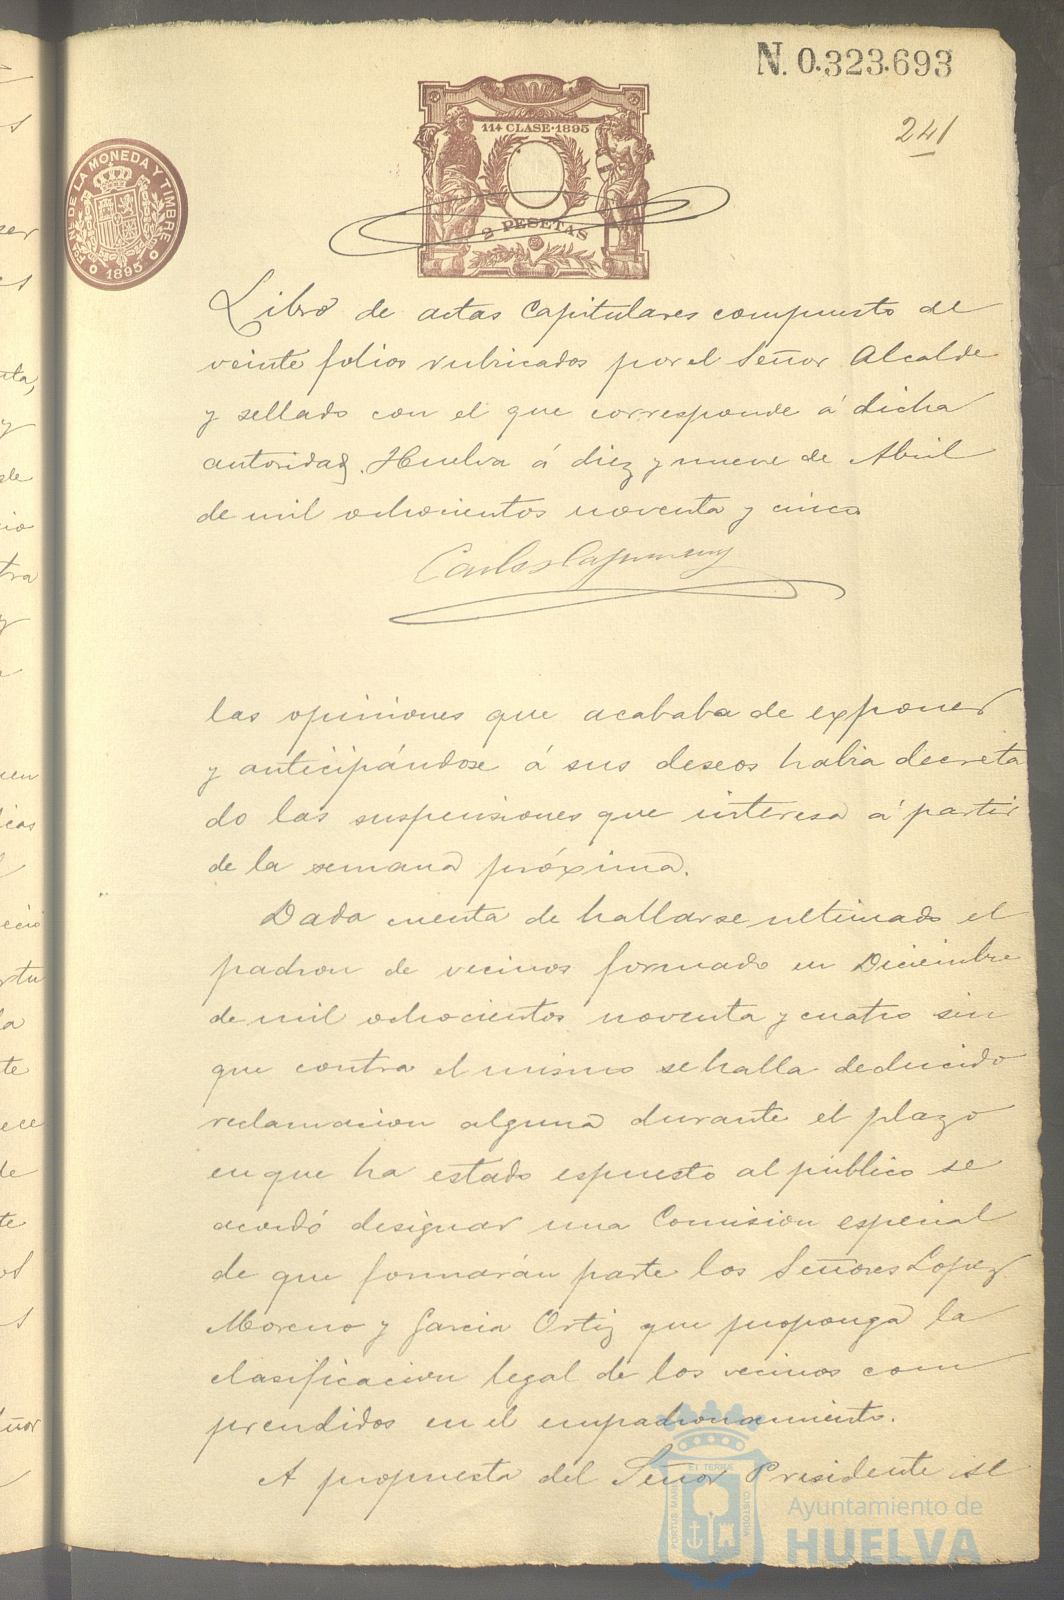 N. 0.323.693
241
11ª CLASE·1895
2 PESETAS
FCA NAL DE LA MONEDA Y TIMBRE
1895
Libro de actas Capitulares compuesto de
veinte folios rubricados por el Señor Alcalde
y sellado con el que corresponde á dicha
autoridad. Huelva á diez y nueve de Abril
de mil ochocientos noventa y cinco
Carlos
las opiniones que acababa de exponer
y anticipándose á sus deseos habia decreta
do las suspensiones que interesa á partir
de la semana próxima.
Dada cuenta de hallarse ultimado el
padron de vecinos formado en Diciembre
de mil ochocientos noventa y cuatro sin
que contra el mismo se halla deducido
reclamacion alguna durante el plazo
en que ha estado espuesto al público se
acordó designar una Comision especial
de que formarán parte los Señores Lopez
Moreno y Garcia Ortiz que proponga la
clasificacion legal de los vecinos com
prendidos en el empadronamiento.
A propuesta del Señor Presidente se
PORTUS MARIS ET TERRÆ CUSTODIA
Ayuntamiento de
HUELVA